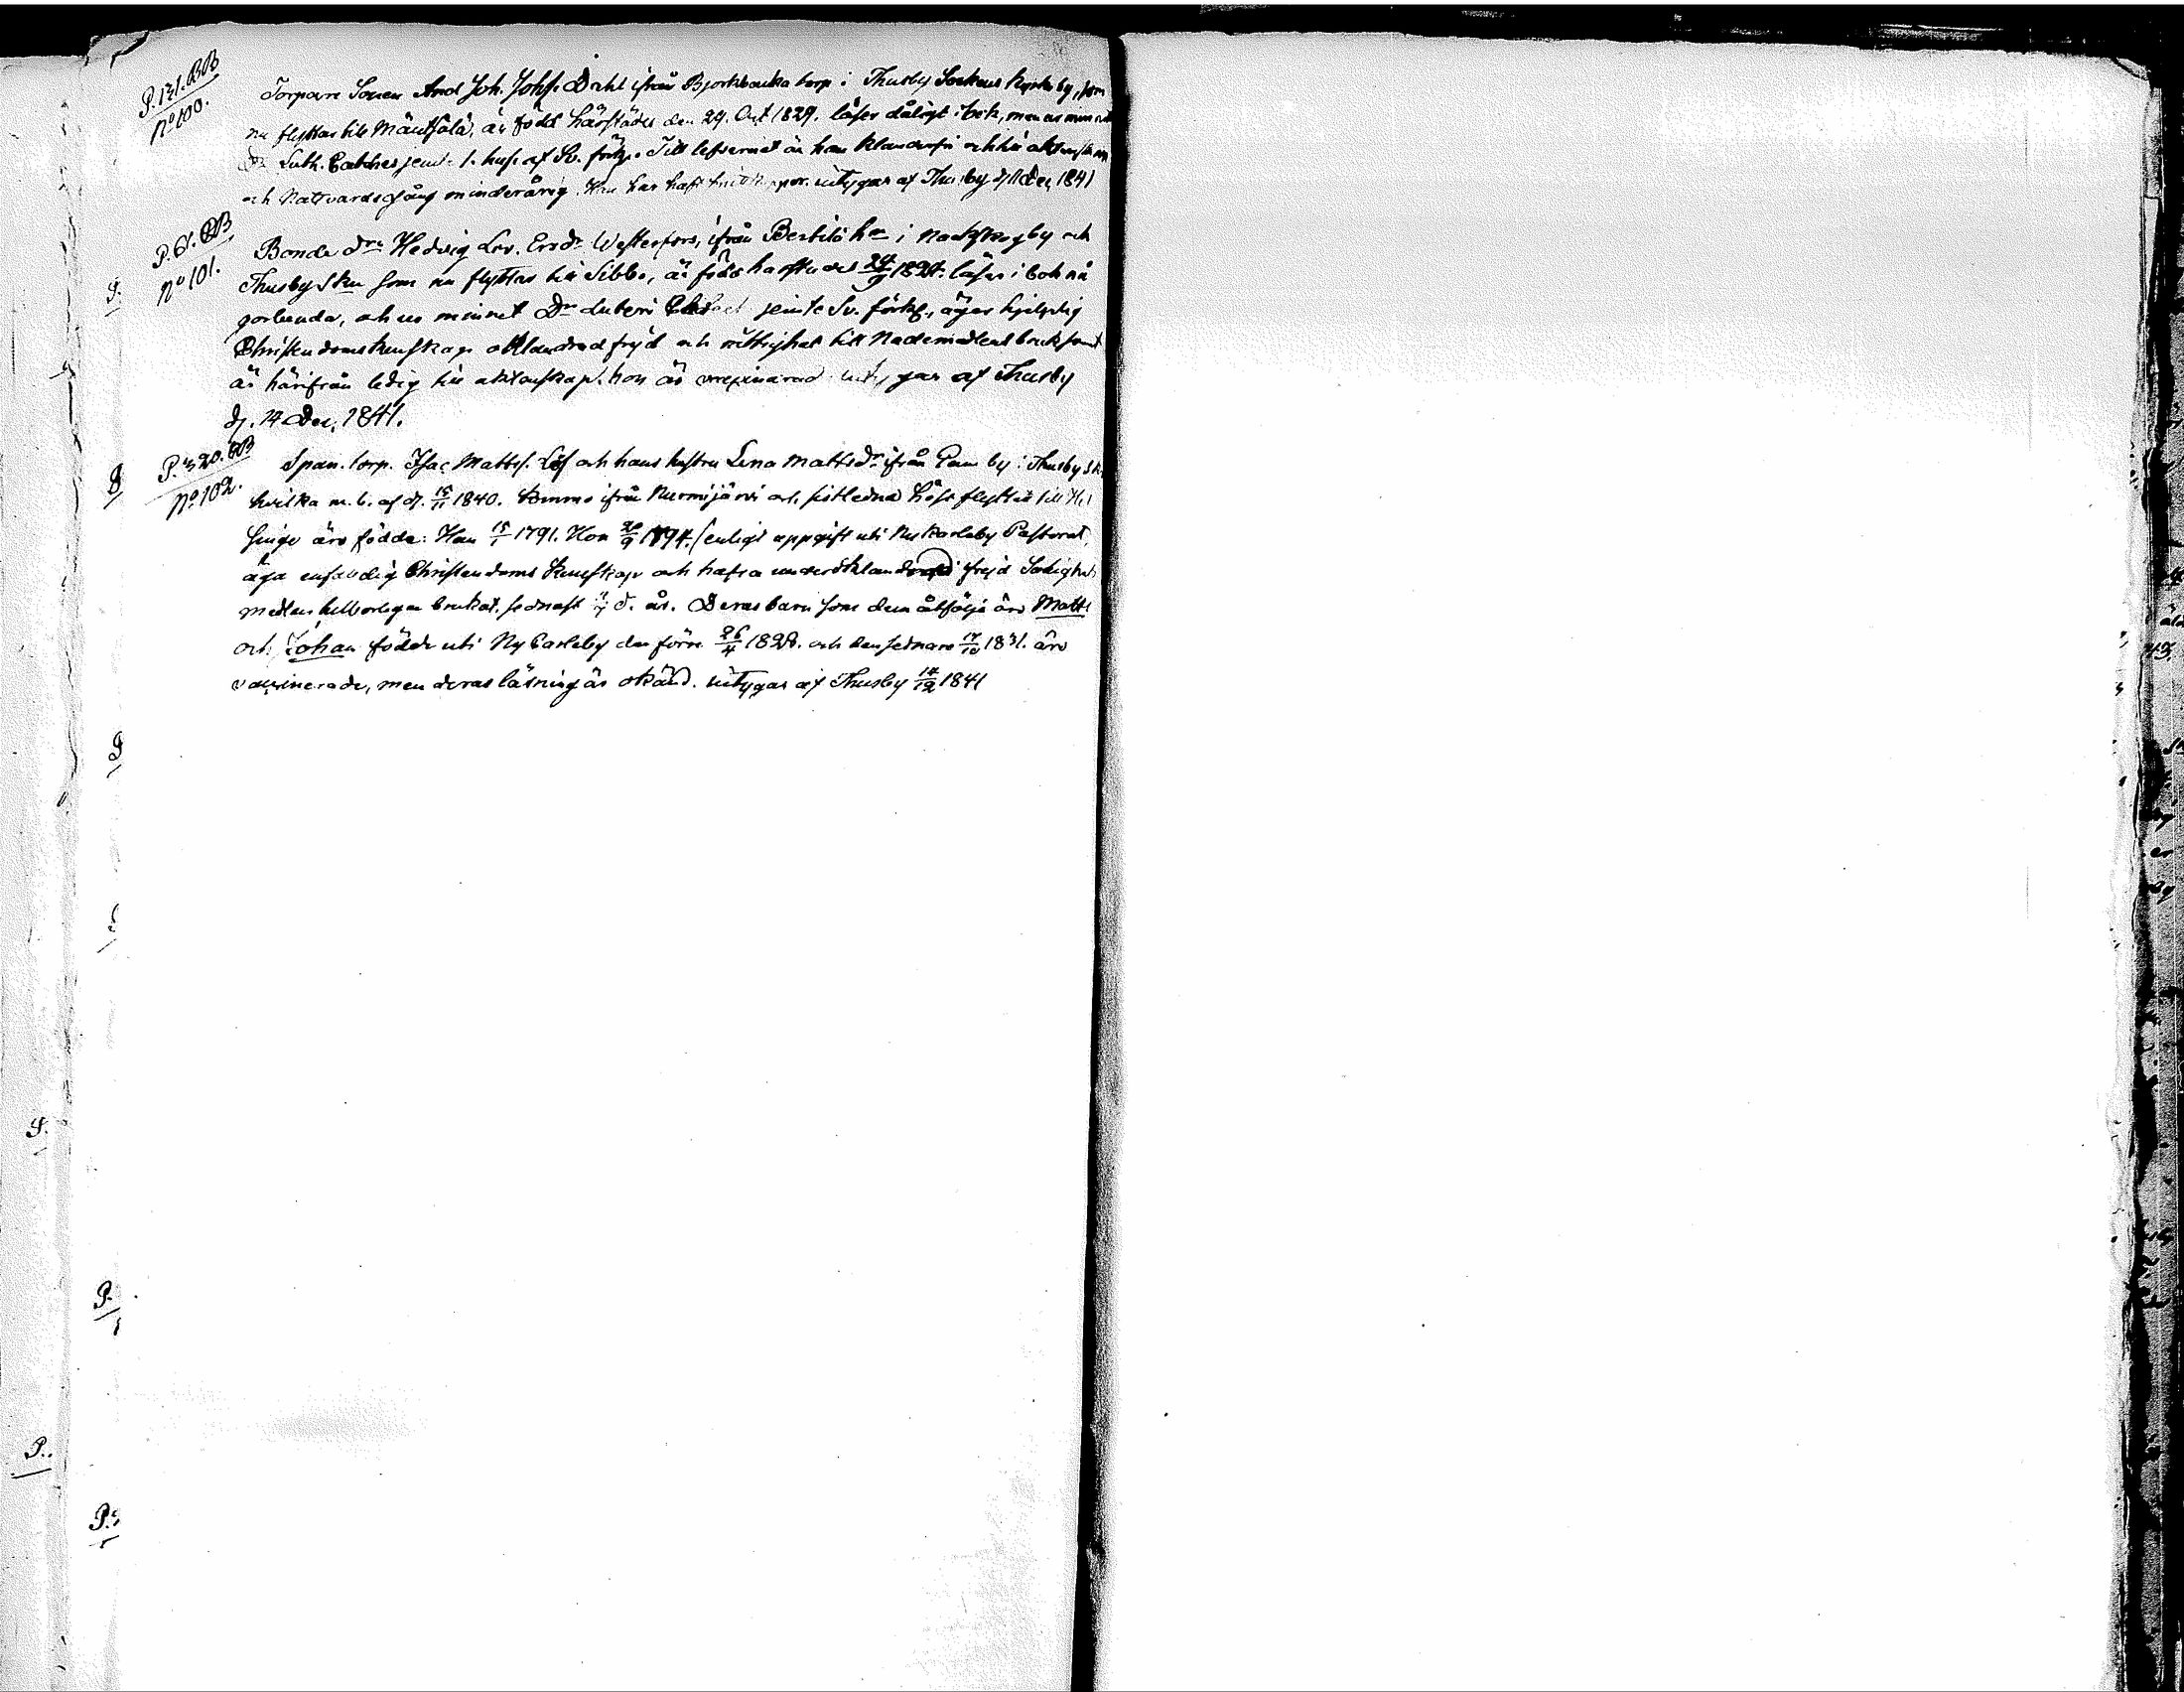 P. 131. BB
No 100.
Torpare Sonen And Joh. Johs. Dahl ifrån Björkbacka torp i Thusby Sockens Kyrkoby, som
nu flyttar till Mäntsälä, är född härstädes den 29. Oct 1829. läser dåligt i bok, men ur minnet
Dr Luth. Catches jemte 1. huf. af Sv. förkl. Till lefvernet är han klanderfri och till
och Nattvardsgång minderårig. Han har haft utygar af Thusby d. 11 Dec, 1841
P. 61. BB
No 101.
Bonde dn Hedvig Lov. Ersdr Westerfors, ifrån Bertils hn i och
Thusby Skn som nu flyttar till Sibbo, är född härstädes 24/9 1824. läser i bok nå
gorlunda, och ur minnet Dr Luteri jemte Sv. förkl., äger hjelplig
Christendoms kunskap oklandrad frejd och rättighet till Nademedlens bruk samt
är härifrån ledig till äktenskap. hon är vaccinerad utygar af Thusby
d. 14 Dec, 1841.
P. 320. BB
No 102.
Span. torp. Isac Mattss. Löf och hans hustru Lena Mattsdr ifrån by i Thusby Sk.
hvilka m. b. af d. 15/11 1840. kommo ifrån Nurmijärvi och sistledne höst flyttat till Hel
singe äro födde: Han 15/1 1791. Hon 20/9 1794. (enligt uppgift uti Nykarleby Pastorat,
äga enfaldig Christendoms Kunskap och hafva under oklandrad frejd Salighets
medlen behörigen brukat, sednast d. år. Deras barn som dem åtfölja äro Matts
och Johan födde uti Ny Carleby den förre 26/4 1828. och den sednare 17/10 1831. äro
vaccinerade, men deras läsning är okänd. utygar af Thusby 14/12 1841